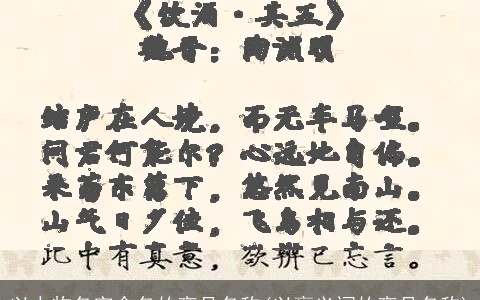 《饮酒·其五》
魏晋：陶渊明
结庐在人境，而无车马喧。
问君何能尔？心远地自偏。
采菊东篱下，悠然见南山。
山气日夕佳，飞鸟相与还。
此中有真意，欲辨已忘言。